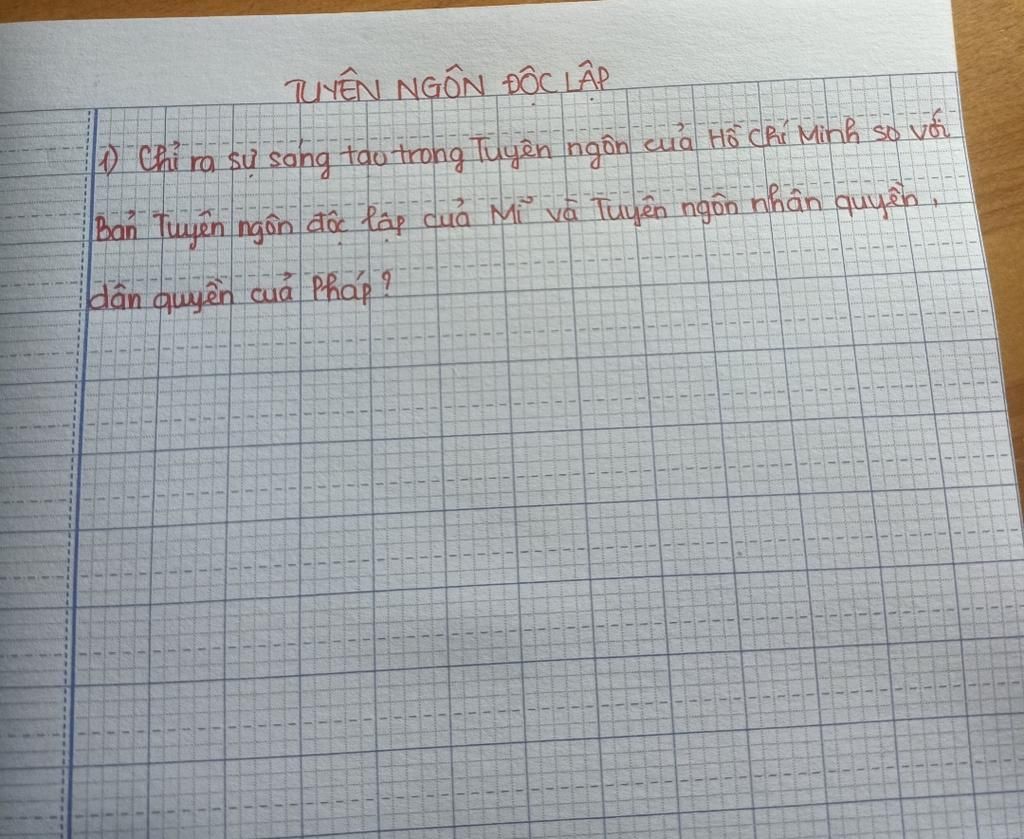 TUYÊN NGÔN ĐỘC LẬP
1) Chỉ ra sự sáng tạo trong Tuyên ngôn của Hồ Chí Minh so với
Bản Tuyên ngôn độc lập của Mĩ và Tuyên ngôn nhân quyền,
dân quyền của Pháp?